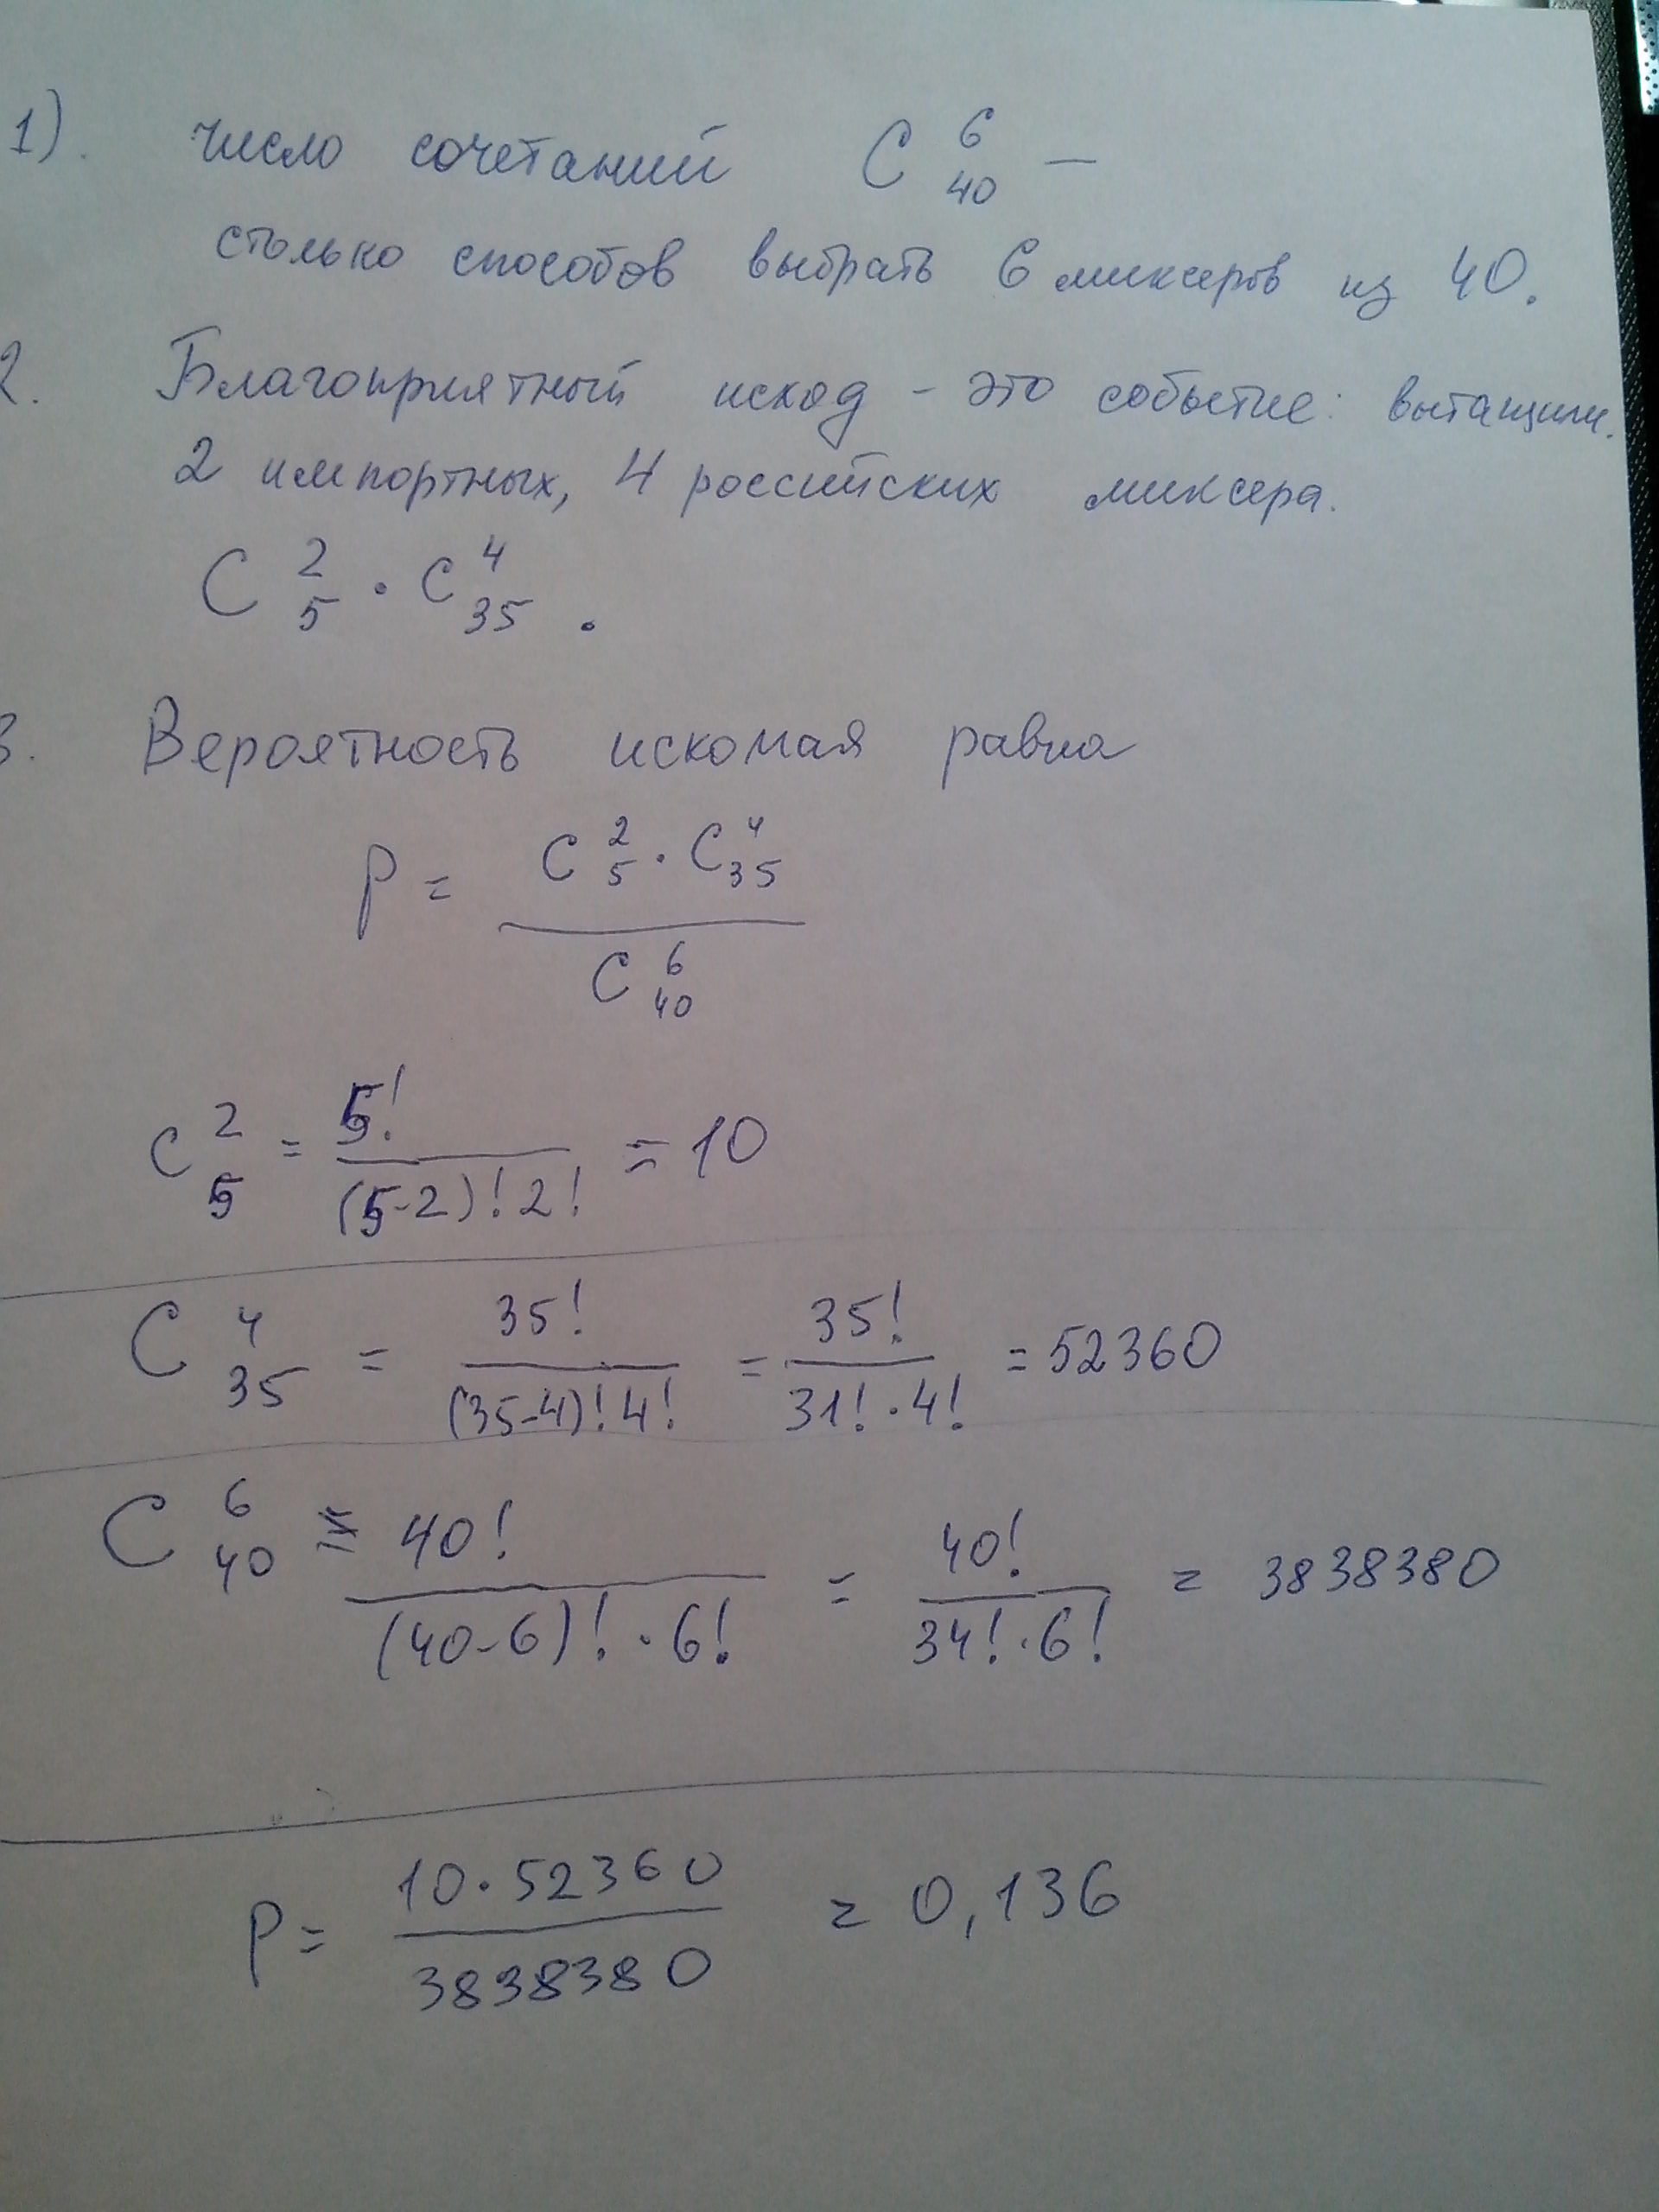 1). число сочетаний C 6 40 —
столько способов выбрать 6 миксеров из 40.
2. Благоприятный исход - это событие: вытащили
2 импортных, 4 российских миксера.
C 2 5 · C 4 35 .
3. Вероятность искомая равна
P = C 2 5 · C 4 35 / C 6 40
C 2 5 = 5! / (5-2)! 2! = 10
C 4 35 = 35! / (35-4)! 4! = 35! / 31! · 4! = 52360
C 6 40 = 40! / (40-6)! · 6! = 40! / 34! · 6! = 3838380
P = 10 · 52360 / 3838380 = 0,136